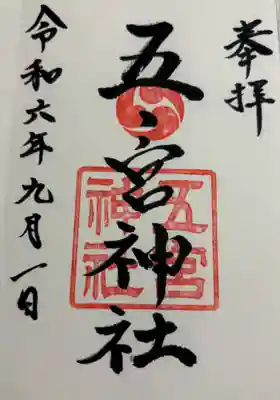 奉拝
五宮神社
五宮
神社
令和六年九月一日